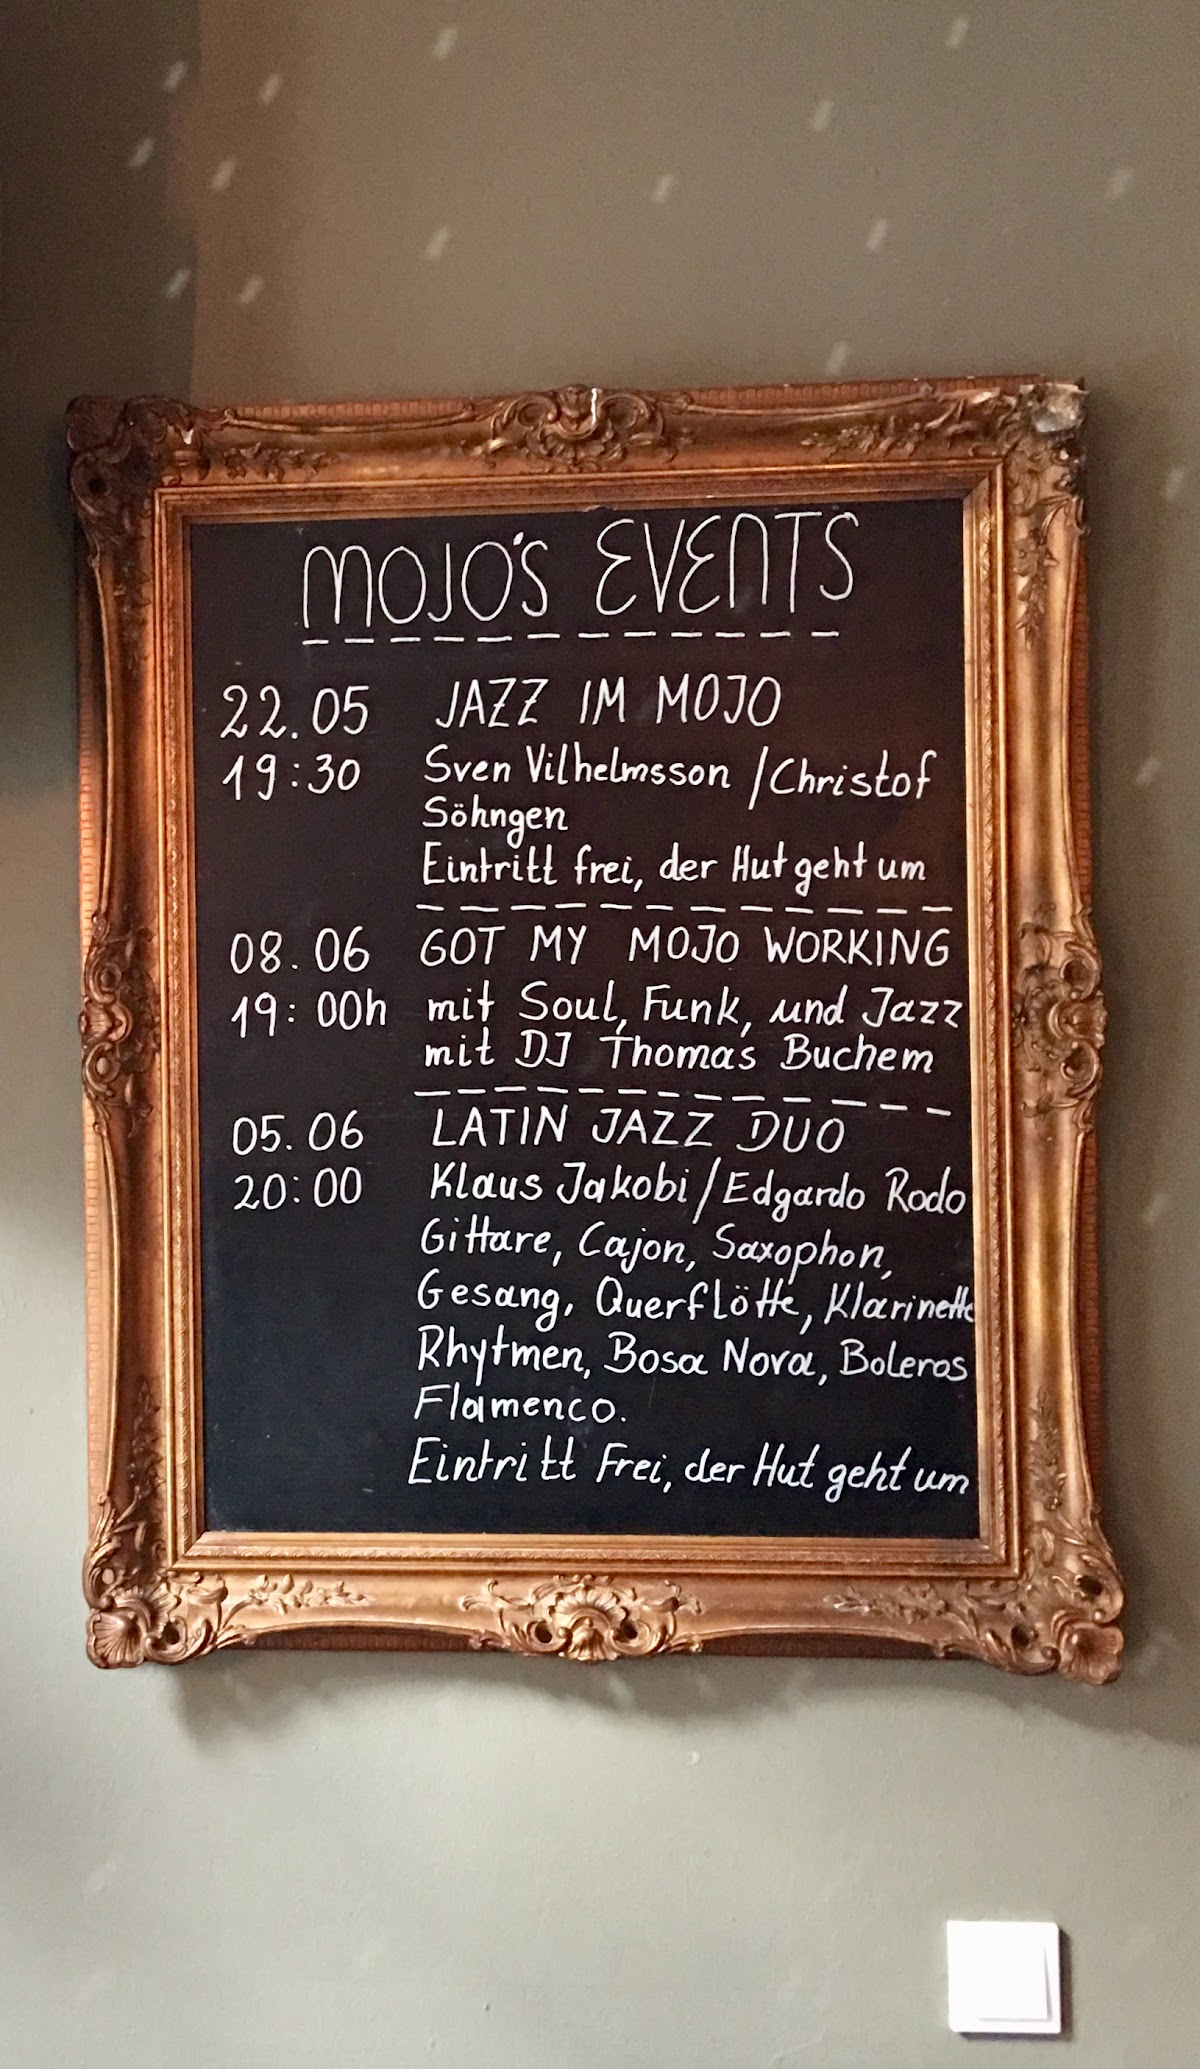 MOJO'S EVENTS
22.05 JAZZ IM MOJO
19:30 Sven Vilhelmsson / Christof
Söhngen
Eintritt frei, der Hut geht um
08.06 GOT MY MOJO WORKING
19:00h mit Soul, Funk, und Jazz
mit DJ Thomas Buchem
05.06 LATIN JAZZ DUO
20:00 Klaus Jakobi / Edgardo Rodo
Gittare, Cajon, Saxophon,
Gesang, Querflötte, Klarinette
Rhytmen, Bosa Nova, Boleros
Flamenco.
Eintritt Frei, der Hut geht um